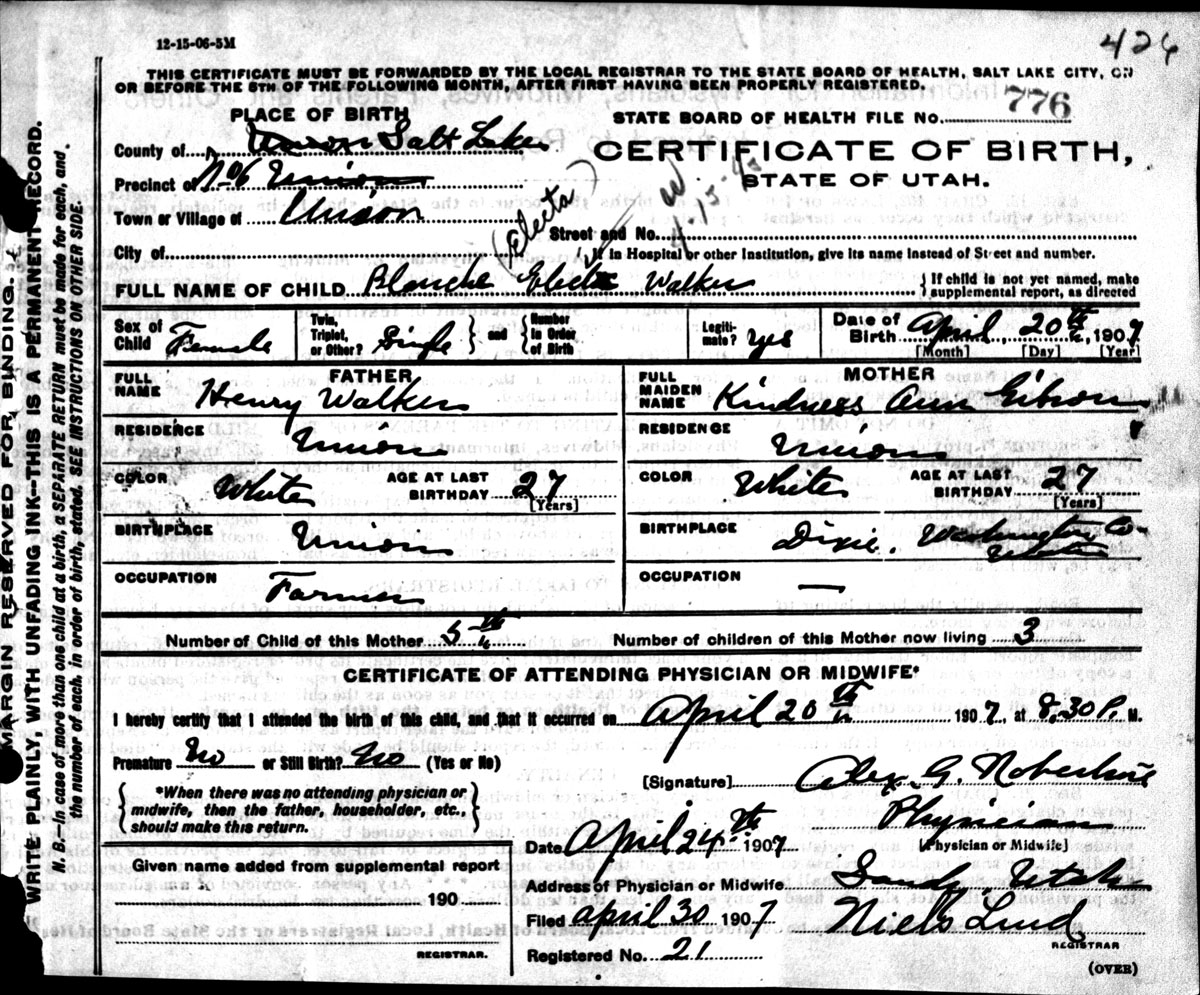 12-15-06-5M
426
THIS CERTIFICATE MUST BE FORWARDED BY THE LOCAL REGISTRAR TO THE STATE BOARD OF HEALTH, SALT LAKE CITY, ON
OR BEFORE THE 5TH OF THE FOLLOWING MONTH, AFTER FIRST HAVING BEEN PROPERLY REGISTERED.
PLACE OF BIRTH
STATE BOARD OF HEALTH FILE NO. 776
County of Union Salt Lake
CERTIFICATE OF BIRTH,
STATE OF UTAH.
Precinct of No 6 Union
Town or Village of Union
(Electa)
Street and No.
City of
If in Hospital or other Institution, give its name instead of Street and number.
FULL NAME OF CHILD Blanche Electa Walker
If child is not yet named, make
supplemental report, as directed
Sex of Child Female
Twin, Triplet, or Other? Single
and Number in Order of Birth
Legitimate? Yes
Date of Birth April 20th, 1907
[Month] [Day] [Year]
FATHER
FULL NAME Henry Walker
RESIDENCE Union
COLOR White AGE AT LAST BIRTHDAY 27
[Years]
BIRTHPLACE Union
OCCUPATION Farmer
MOTHER
FULL MAIDEN NAME Kindness Ann Gibson
RESIDENCE Union
COLOR White AGE AT LAST BIRTHDAY 27
[Years]
BIRTHPLACE Dixie, Washington Co
Utah
OCCUPATION —
Number of Child of this Mother 5th
Number of children of this Mother now living 3
CERTIFICATE OF ATTENDING PHYSICIAN OR MIDWIFE*
I hereby certify that I attended the birth of this child, and that it occurred on April 20th 1907, at 8:30 P. M.
Premature No or Still Birth? No (Yes or No)
*When there was no attending physician or
midwife, then the father, householder, etc.,
should make this return.
[Signature] Alex. G. Robertson
Physician
[Physician or Midwife]
Date April 24th 1907
Given name added from supplemental report
of
190
REGISTRAR.
Address of Physician or Midwife Sandy, Utah
Filed April 30 1907 Niels Lind
REGISTRAR
Registered No. 21
(OVER)
MARGIN RESERVED FOR BINDING.
WRITE PLAINLY, WITH UNFADING INK—THIS IS A PERMANENT RECORD.
N. B.—In case of more than one child at a birth, a SEPARATE RETURN must be made for each, and
the number of each, in order of birth, stated. SEE INSTRUCTIONS ON OTHER SIDE.